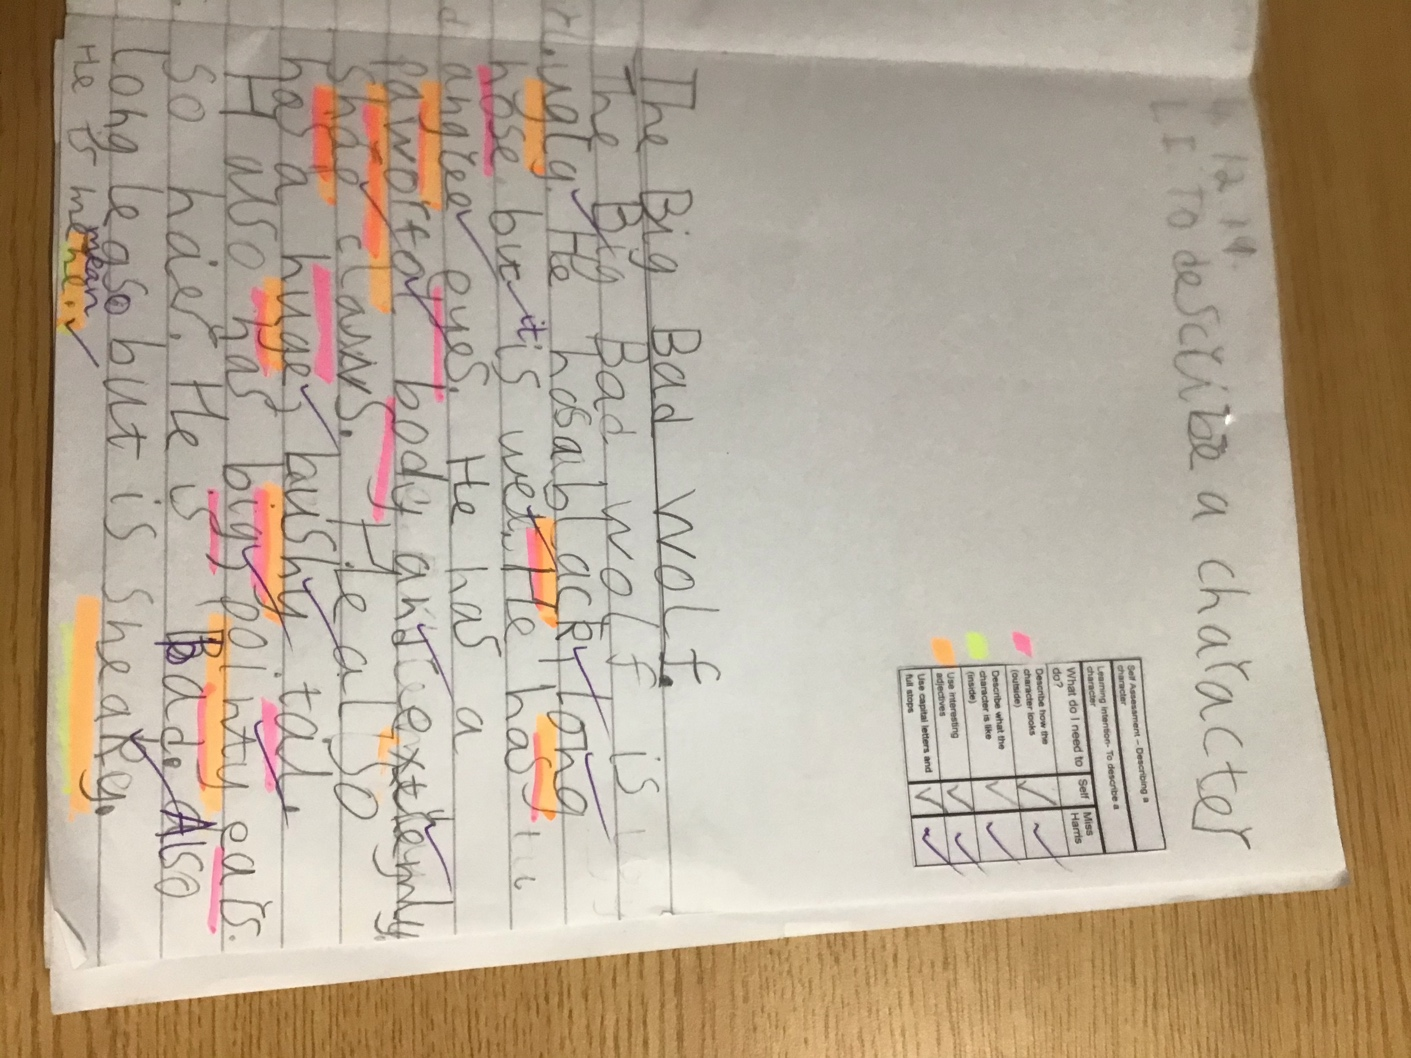 4 12 19.
L I. To describe a character
Self Assessment – Describing a character
Learning Intention- To describe a character
What do I need to do?
Self
Miss Harris
Describe how the character looks (outside)
Describe what the character is like (inside)
Use interesting adjectives
Use capital letters and full stops
The Big Bad Wolf
The Big Bad Wolf is
ugly. He hasablack long
nose but it is wet. He has
angree eyes. He has a
body and extremly
shap claws. He also
has a huge bushy tal.
H also has big pointy ears.
so haier. He is Bad. Also
long legso but is sneaky.
He is mean